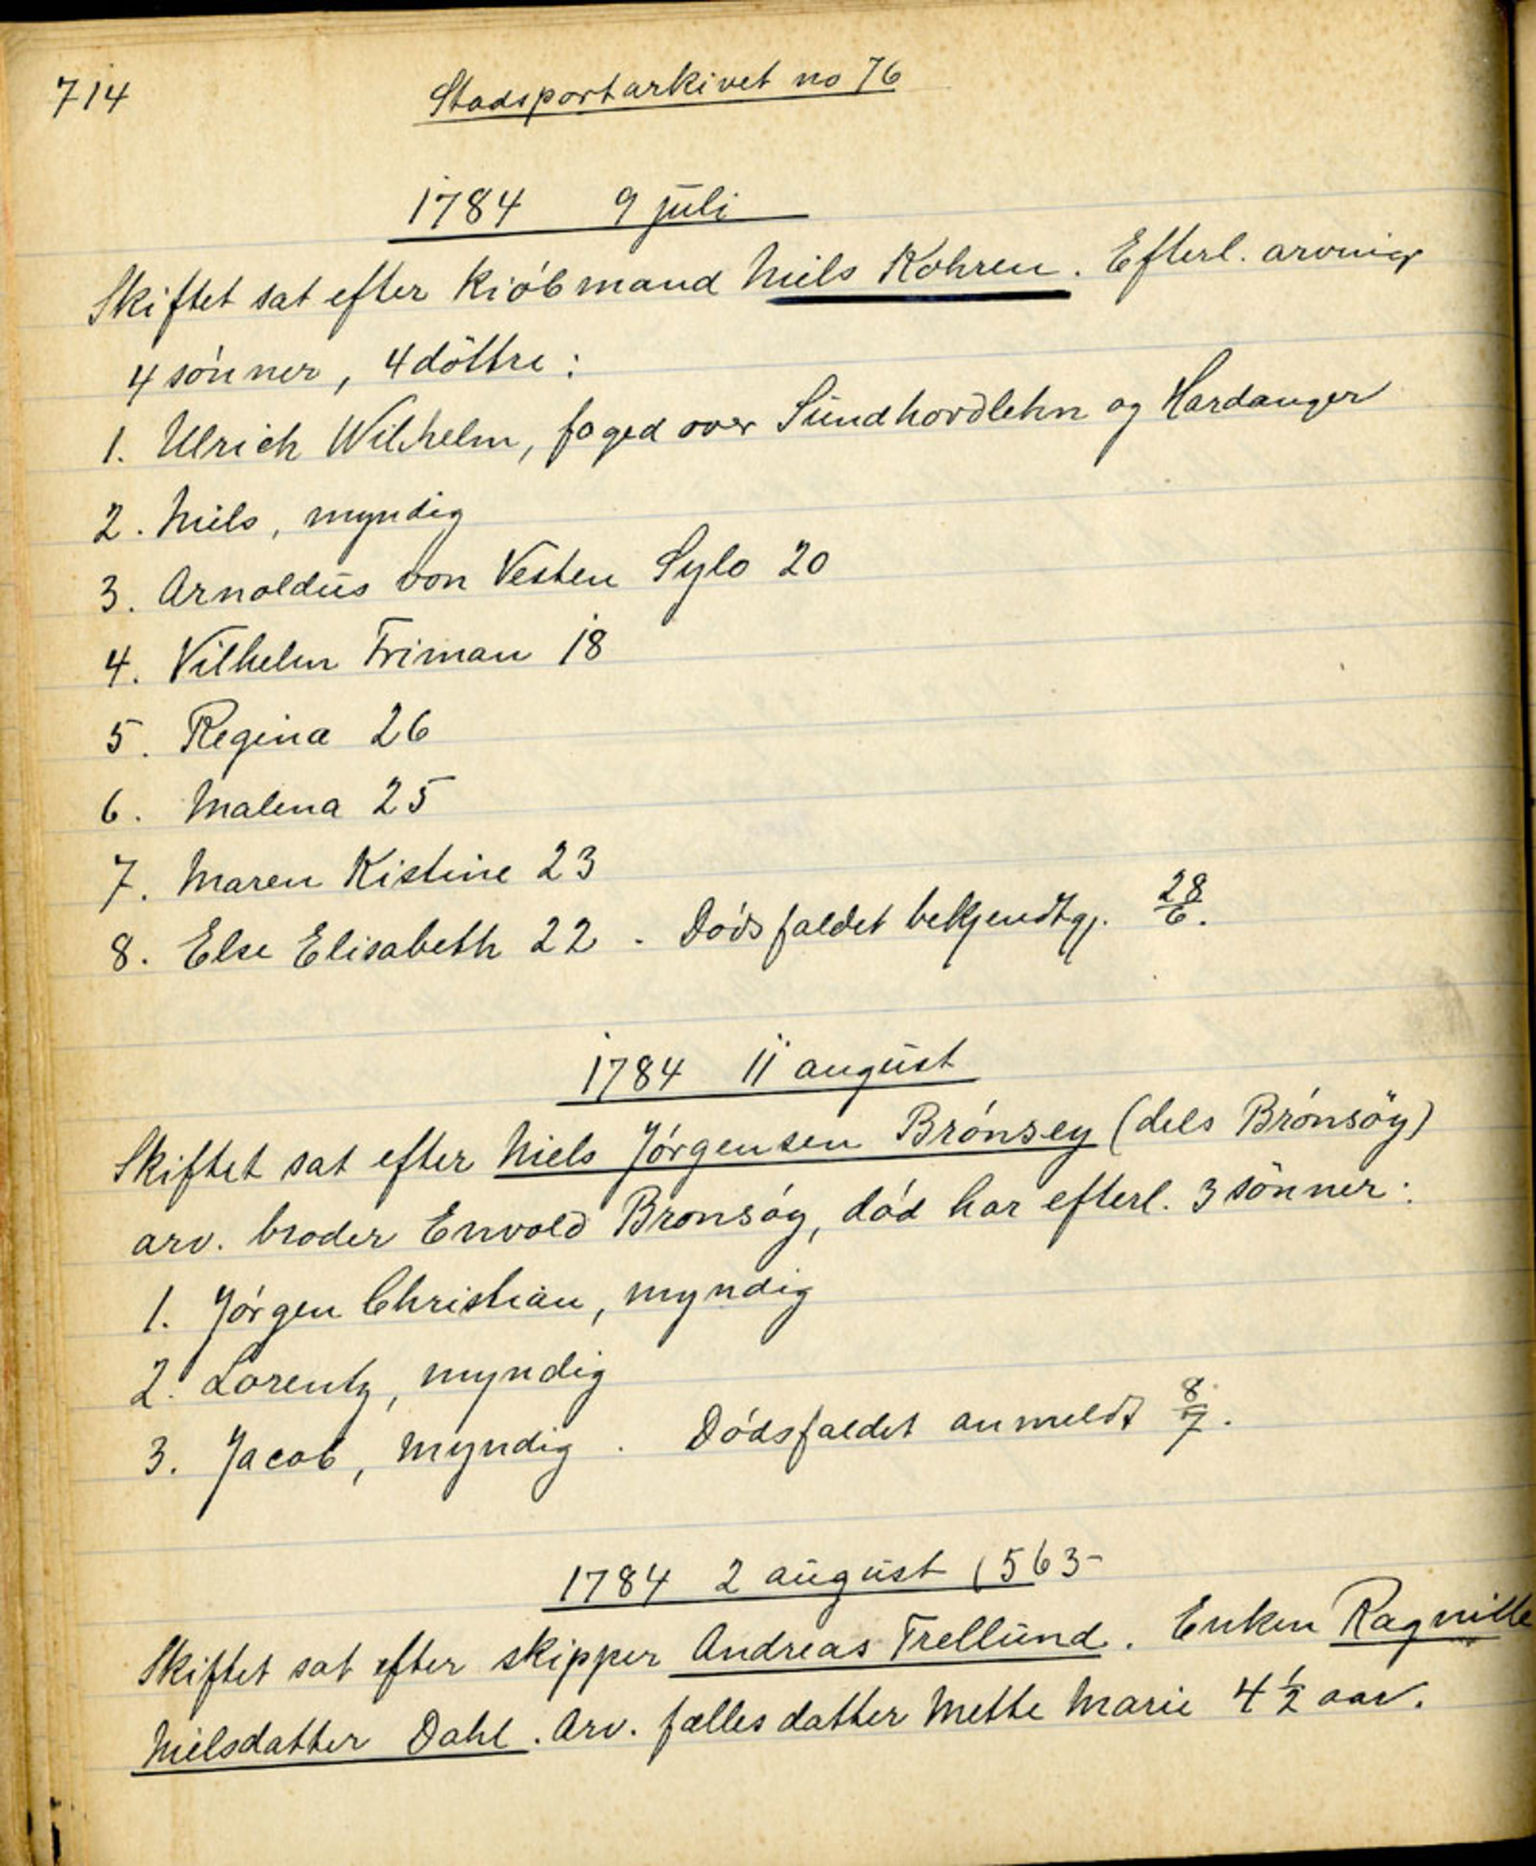 714
Stadsportarkivet no 76
1784 9 juli
Skiftet sat efter kiöbmand Niels Kohren. Efterl. arvinger
4 sönner, 4 döttre:
1. Ulrich Wilhelm, foged over Sundhordlehn og Hardanger
2. Niels, myndig
3. Arnoldus von Vesten Sylo 20
4. Vilhelm Friman 18
5. Regina 26
6. Malena 25
7. Maren Kistine 23
8. Else Elisabeth 22. Dödsfaldet bekjendtgj. 28/6.
1784 11 august
Skiftet sat efter Niels Jörgensen Brönsey (dels Brönsöy)
arv. broder Envold Bronsöy, död har efterl. 3 sönner:
1. Jörgen Christian, myndig
2. Lorentz, myndig
3. Jacob, myndig. Dödsfaldet anmeldt 8/7.
1784 2 august (563-
Skiftet sat efter skipper Andreas Trellund. Enken Ragnille
Nielsdatter Dahl. Arv. fælles datter Mette Marie 4 1/2 aar.